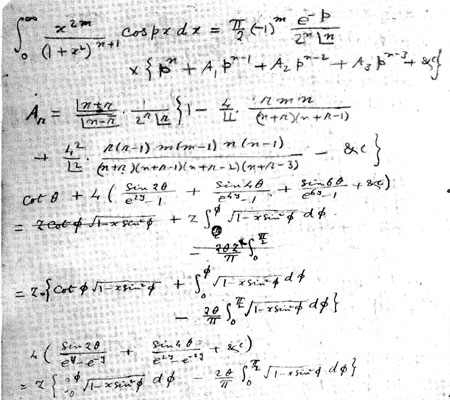 ∫₀^∞ x^{2m}/(1+x²)^{n+1} cos px dx = π/2 (-1)^m e^{-p}/(2^n |n)
× { p^n + A₁ p^{n-1} + A₂ p^{n-2} + A₃ p^{n-3} + &c }
A_r = |n+r / |n-r · 1/(2^r |r) { 1 - 4/|1 · r m n/((n+r)(n+r-1))
+ 4²/|2 · r(r-1) m(m-1) n(n-1)/((n+r)(n+r-1)(n+r-2)(n+r-3)) - &c }
cot θ + 4 ( sin 2θ/(e^{2y}-1) + sin 4θ/(e^{4y}-1) + sin 6θ/(e^{6y}-1) + &c )
= z cot φ √(1-x sin²φ) + z ∫₀^φ √(1-x sin²φ) dφ
- 2θz/π ∫₀^{π/2}
= z { cot φ √(1-x sin²φ) + ∫₀^φ √(1-x sin²φ) dφ
- 2θ/π ∫₀^{π/2} √(1-x sin²φ) dφ }
4 ( sin 2θ/(e^y-e^{-y}) + sin 4θ/(e^{2y}-e^{-2y}) + &c )
= z { ∫₀^φ √(1-x sin²φ) dφ - 2θ/π ∫₀^{π/2} √(1-x sin²φ) dφ }